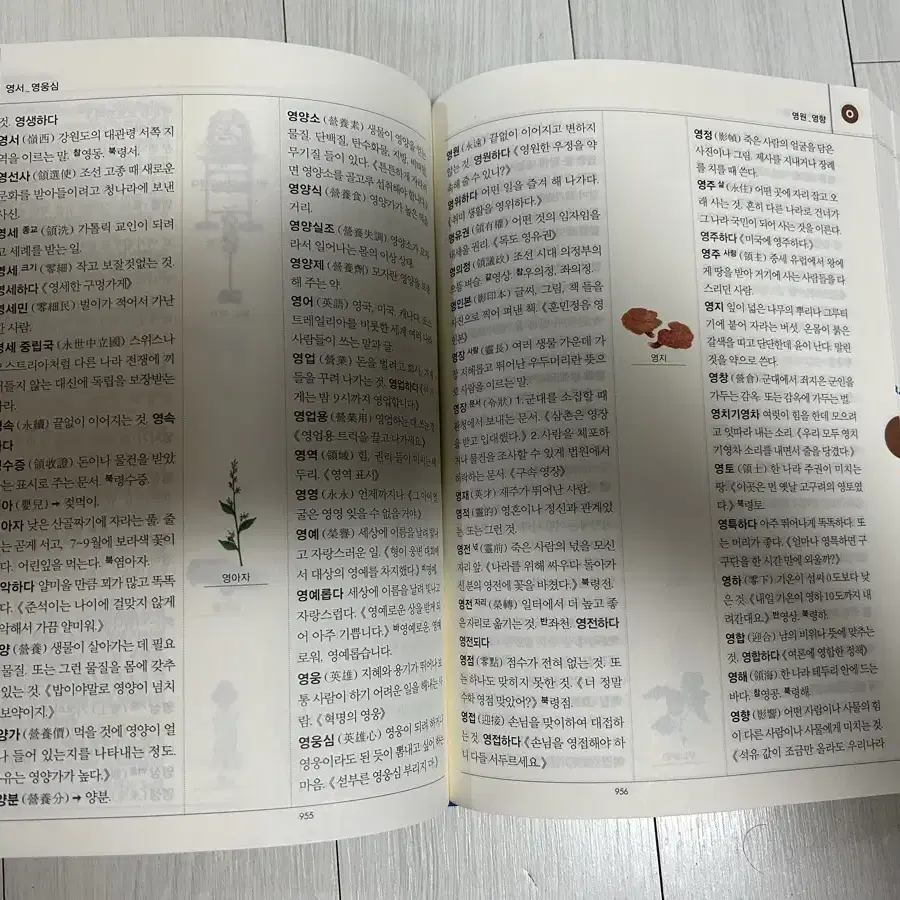 영서_영웅심
것. 영생하다
영서 (嶺西) 강원도의 대관령 서쪽 지
역을 이르는 말. 참영동. 북령서.
영선사 (領選使) 조선 고종 때 새로운
문화를 받아들이려고 청나라에 보낸
사신.
영세 종교 (領洗) 가톨릭 교인이 되려
고 세례를 받는 일.
영세 크기 (零細) 작고 보잘것없는 것.
영세하다 《영세한 구멍가게》
영세민 (零細民) 벌이가 적어서 가난
한 사람.
영세 중립국 (永世中立國) 스위스나
오스트리아처럼 다른 나라 전쟁에 끼
어들지 않는 대신에 독립을 보장받는
나라.
영속 (永續) 끝없이 이어지는 것. 영속
하다
영수증 (領收證) 돈이나 물건을 받았
다는 표시로 주는 문서. 북령수증.
영아 (嬰兒) → 젖먹이.
영아자 낮은 산골짜기에 자라는 풀. 줄
기는 곧게 서고, 7~9월에 보라색 꽃이
핀다. 어린잎을 먹는다. 북염아자.
영악하다 얄미울 만큼 꾀가 많고 똑똑
하다. 《준석이는 나이에 걸맞지 않게
영악해서 가끔 얄미워.》
영양 (營養) 생물이 살아가는 데 필요
한 물질. 또는 그런 물질을 몸에 갖추
고 있는 것. 《밥이야말로 영양이 넘치
는 보약이지.》
영양가 (營養價) 먹을 것에 영양이 얼
마나 들어 있는지를 나타내는 정도.
《우유는 영양가가 높다.》
영양분 (營養分) → 양분.
영아자
영양소 (營養素) 생물이 영양을 얻는
물질. 단백질, 탄수화물, 지방, 비타민,
무기질 들이 있다. 《튼튼하게 자라려
면 영양소를 골고루 섭취해야 합니다.》
영양식 (營養食) 영양가가 높은 먹을
거리.
영양실조 (營養失調) 영양소가 모자
라서 일어나는 몸의 이상 상태.
영양제 (營養劑) 모자란 영양을 보충
해 주는 약.
영어 (英語) 영국, 미국, 캐나다, 오스
트레일리아를 비롯한 세계 여러 나라
사람들이 쓰는 말과 글.
영업 (營業) 돈을 벌려고 회사, 가게
들을 꾸려 나가는 것. 영업하다 《이 가
게는 밤 9시까지 영업합니다.》
영업용 (營業用) 영업하는 데 쓰는 것.
《영업용 트럭을 끌고 나가세요.》
영역 (領域) 힘, 권리 들이 미치는 테
두리. 《영역 표시》
영영 (永永) 언제까지나. 《그 아이 얼
굴은 영영 잊을 수 없을 거야.》
영예 (榮譽) 세상에 이름을 날려 빛나
고 자랑스러운 일. 《형이 웅변 대회에
서 대상의 영예를 차지했다.》 비영광.
영예롭다 세상에 이름을 날려 빛나고
자랑스럽다. 《영예로운 상을 받게 되
어 아주 기쁩니다.》 바영예로운, 영예
로워, 영예롭습니다.
영웅 (英雄) 지혜와 용기가 뛰어나 보
통 사람이 하기 어려운 일을 해내는 사
람. 《혁명의 영웅》
영웅심 (英雄心) 영웅이 되려 하거나
영웅이라도 된 듯이 뽐내고 싶어 하는
마음. 《섣부른 영웅심 부리지 마.》
955
영원_영향
영원 (永遠) 끝없이 이어지고 변하지
않는 것. 영원하다 《영원한 우정을 약
속해 줄 수 있니?》
영위하다 어떤 일을 즐겨 해 나가다.
《취미 생활을 영위하다.》
영유권 (領有權) 어떤 것의 임자임을
내세울 권리. 《독도 영유권》
영의정 (領議政) 조선 시대 의정부의
으뜸 벼슬. 같영상. 참우의정, 좌의정.
영인본 (影印本) 글씨, 그림, 책 들을
사진으로 찍어 펴낸 책. 《훈민정음 영
인본》
영장 사람 (靈長) 여러 생물 가운데 가
장 지혜롭고 뛰어난 우두머리란 뜻으
로 사람을 이르는 말.
영장 문서 (令狀) 1. 군대를 소집할 때
관청에서 보내는 문서. 《삼촌은 영장
을 받고 입대했다.》 2. 사람을 체포하
거나 물건을 조사할 수 있게 법원에서
허락하는 문서. 《구속 영장》
영재 (英才) 재주가 뛰어난 사람.
영적 (靈的) 영혼이나 정신과 관계있
는. 또는 그런 것.
영전 넋 (靈前) 죽은 사람의 넋을 모신
자리 앞. 《나라를 위해 싸우다 돌아가
신 분의 영전에 꽃을 바쳤다.》 북령전.
영전 자리 (榮轉) 일터에서 더 높고 좋
은 자리로 옮기는 것. 반좌천. 영전하다
영전되다
영점 (零點) 점수가 전혀 없는 것. 또
는 하나도 맞히지 못한 것. 《너 정말
수학 영점 맞았어?》 북령점.
영접 (迎接) 손님을 맞이하여 대접하
는 것. 영접하다 《손님을 영접해야 하
니 다들 서두르세요.》
영지
영정 (影幀) 죽은 사람의 얼굴을 담은
사진이나 그림. 제사를 지내거나 장례
를 치를 때 쓴다.
영주 삶 (永住) 어떤 곳에 자리 잡고 오
래 사는 것. 흔히 다른 나라로 건너가
그 나라 국민이 되어 사는 것을 이른다.
영주하다 《미국에 영주하다.》
영주 사람 (領主) 중세 유럽에서 왕에
게 땅을 받아 거기에 사는 사람들을 다
스리던 사람.
영지 잎이 넓은 나무의 뿌리나 그루터
기에 붙어 자라는 버섯. 온몸이 붉은
갈색을 띠고 단단한데 윤이 난다. 말린
것을 약으로 쓴다.
영창 (營倉) 군대에서 죄지은 군인을
가두는 감옥. 또는 감옥에 가두는 벌.
영치기영차 여럿이 힘을 한데 모으려
고 잇따라 내는 소리. 《우리 모두 영치
기영차 소리를 내면서 줄을 당겼다.》
영토 (領土) 한 나라 주권이 미치는
땅. 《이곳은 먼 옛날 고구려의 영토였
다.》 북령토.
영특하다 아주 뛰어나게 똑똑하다. 또
는 머리가 좋다. 《얼마나 영특하면 구
구단을 한 시간 만에 외울까?》
영하 (零下) 기온이 섭씨 0도보다 낮
은 것. 《내일 기온이 영하 10도까지 내
려간대요.》 반영상. 북령하.
영합 (迎合) 남의 비위나 뜻에 맞추는
것. 영합하다 《여론에 영합한 정책》
영해 (領海) 한 나라 테두리 안에 드는
바다. 참영공. 북령해.
영향 (影響) 어떤 사람이나 사물의 힘
이 다른 사람이나 사물에게 미치는 것.
《석유 값이 조금만 올라도 우리나라
956